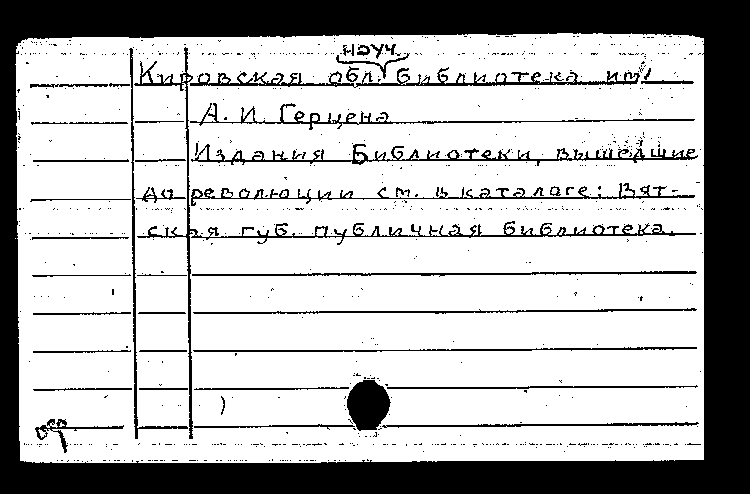 науч.
Кировская обл. библиотека им.
А. И. Герцена
Издания Библиотеки, вышедшие
до революции см. в каталоге: Вят-
ская губ. публичная библиотека.